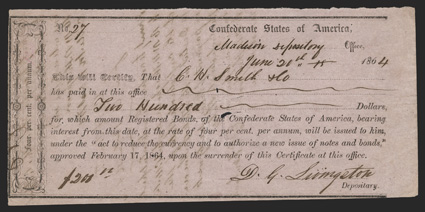 No. 27
Confederate States of America,
Madison Depository Office,
June 20th 1864
This Will Certify, That C. H. Smith & Co
has paid in at this office
Two Hundred Dollars,
for which amount Registered Bonds, of the Confederate States of America, bearing
interest from this date, at the rate of four per cent. per annum, will be issued to him,
under the "act to reduce the currency and to authorize a new issue of notes and bonds,"
approved February 17, 1864, upon the surrender of this Certificate at this office.
D. G. Livingston
Depositary.
Four per cent. per annum.